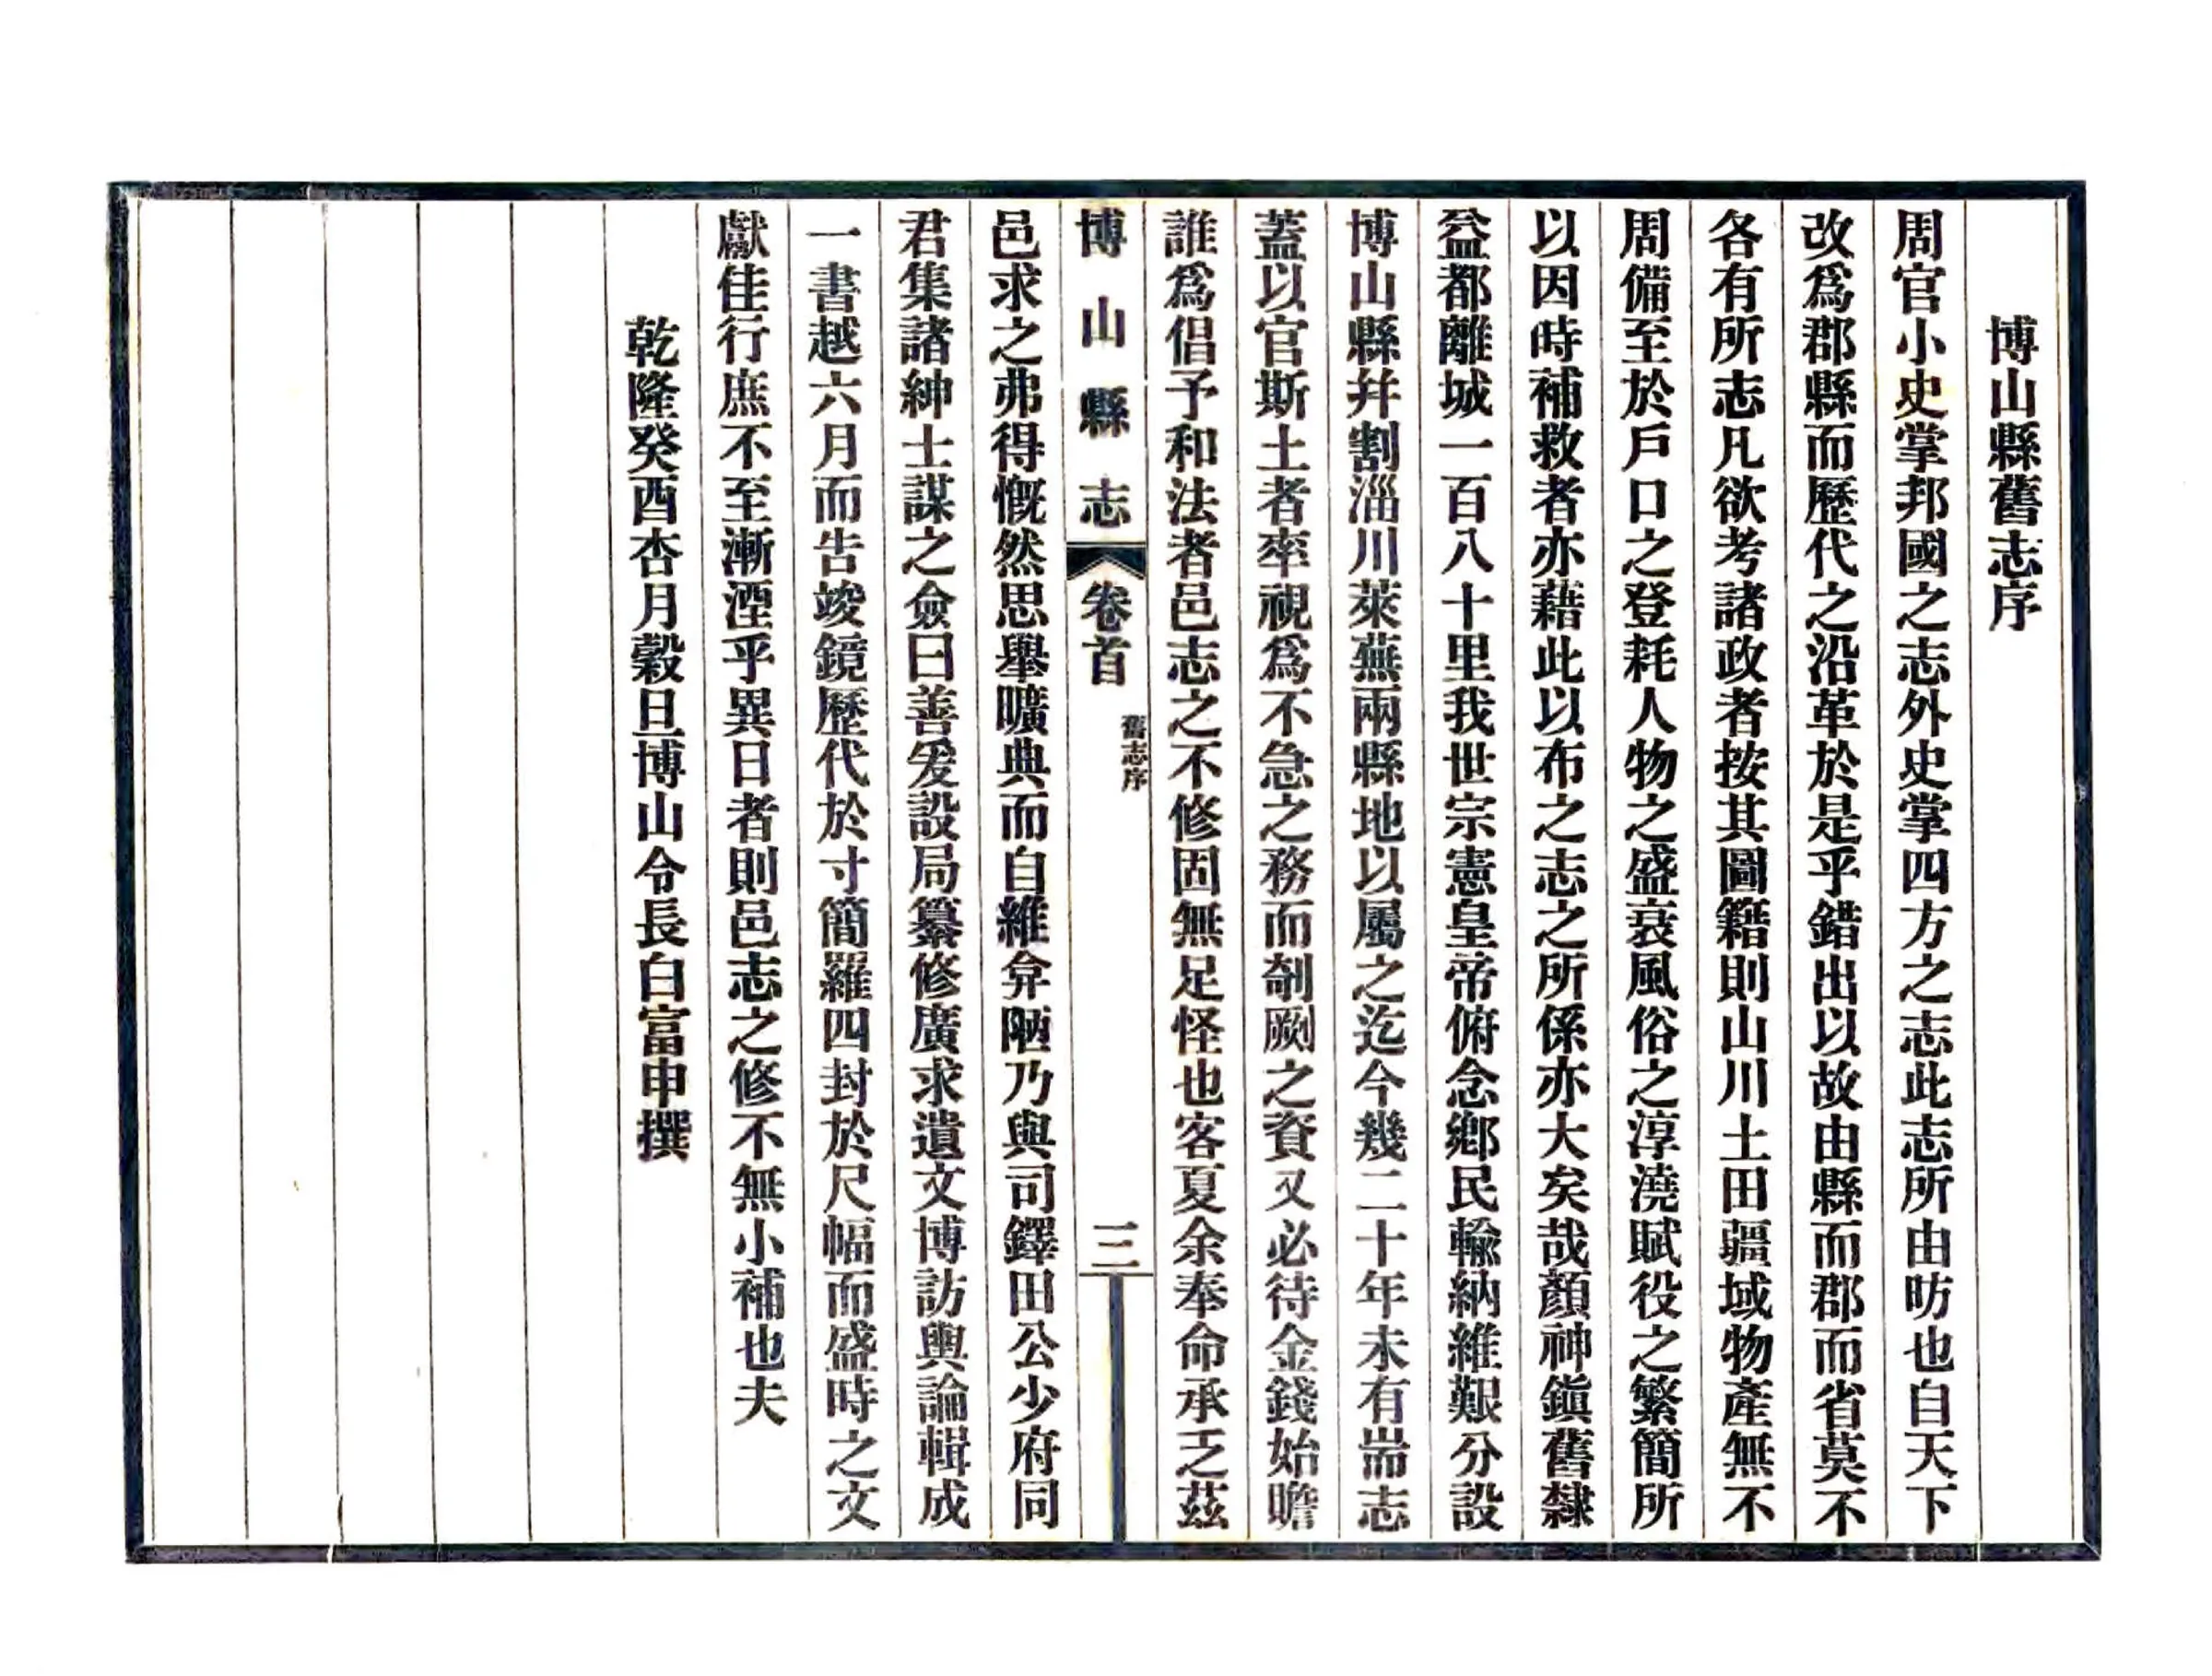 博山縣舊志序
周官小史掌邦國之志外史掌四方之志此志所由昉也自天下
改爲郡縣而歷代之沿革於是乎錯出以故由縣而郡而省莫不
各有所志凡欲考諸政者按其圖籍則山川土田疆域物產無不
周備至於戶口之登耗人物之盛衰風俗之淳澆賦役之繁簡所
以因時補救者亦藉此以布之志之所係亦大矣哉顏神鎭舊隸
益都離城一百八十里我世宗憲皇帝俯念鄉民輸納維艱分設
博山縣幷割淄川萊蕪兩縣地以屬之迄今幾二十年未有耑志
蓋以官斯土者率視爲不急之務而剞劂之資又必待金錢始贍
誰爲倡予和法者邑志之不修固無足怪也客夏余奉命承乏茲
博山縣志 卷首 舊志序 三
邑求之弗得慨然思舉曠典而自維弇陋乃與司鐸田公少府同
君集諸紳士謀之僉曰善爰設局纂修廣求遺文博訪輿論輯成
一書越六月而告竣鏡歷代於寸簡羅四封於尺幅而盛時之文
獻佳行庶不至漸湮乎異日者則邑志之修不無小補也夫
乾隆癸酉杏月穀旦博山令長白富申撰